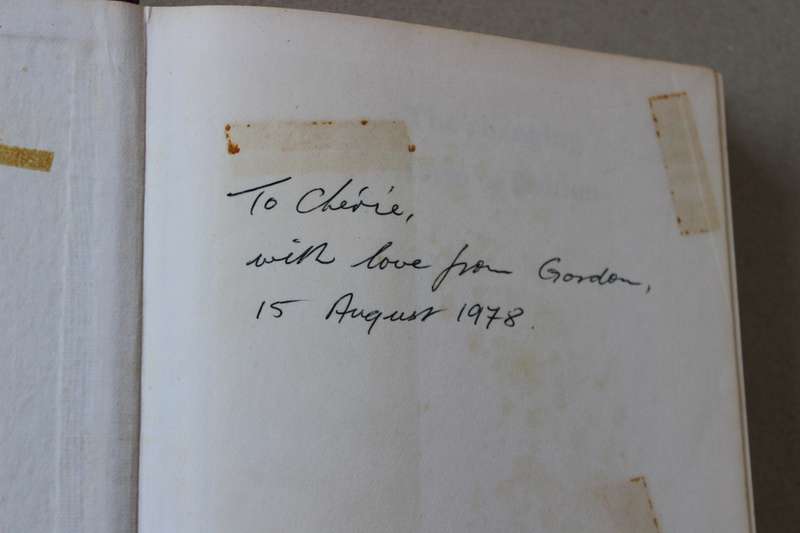 To Chérie,
with love from Gordon,
15 August 1978.